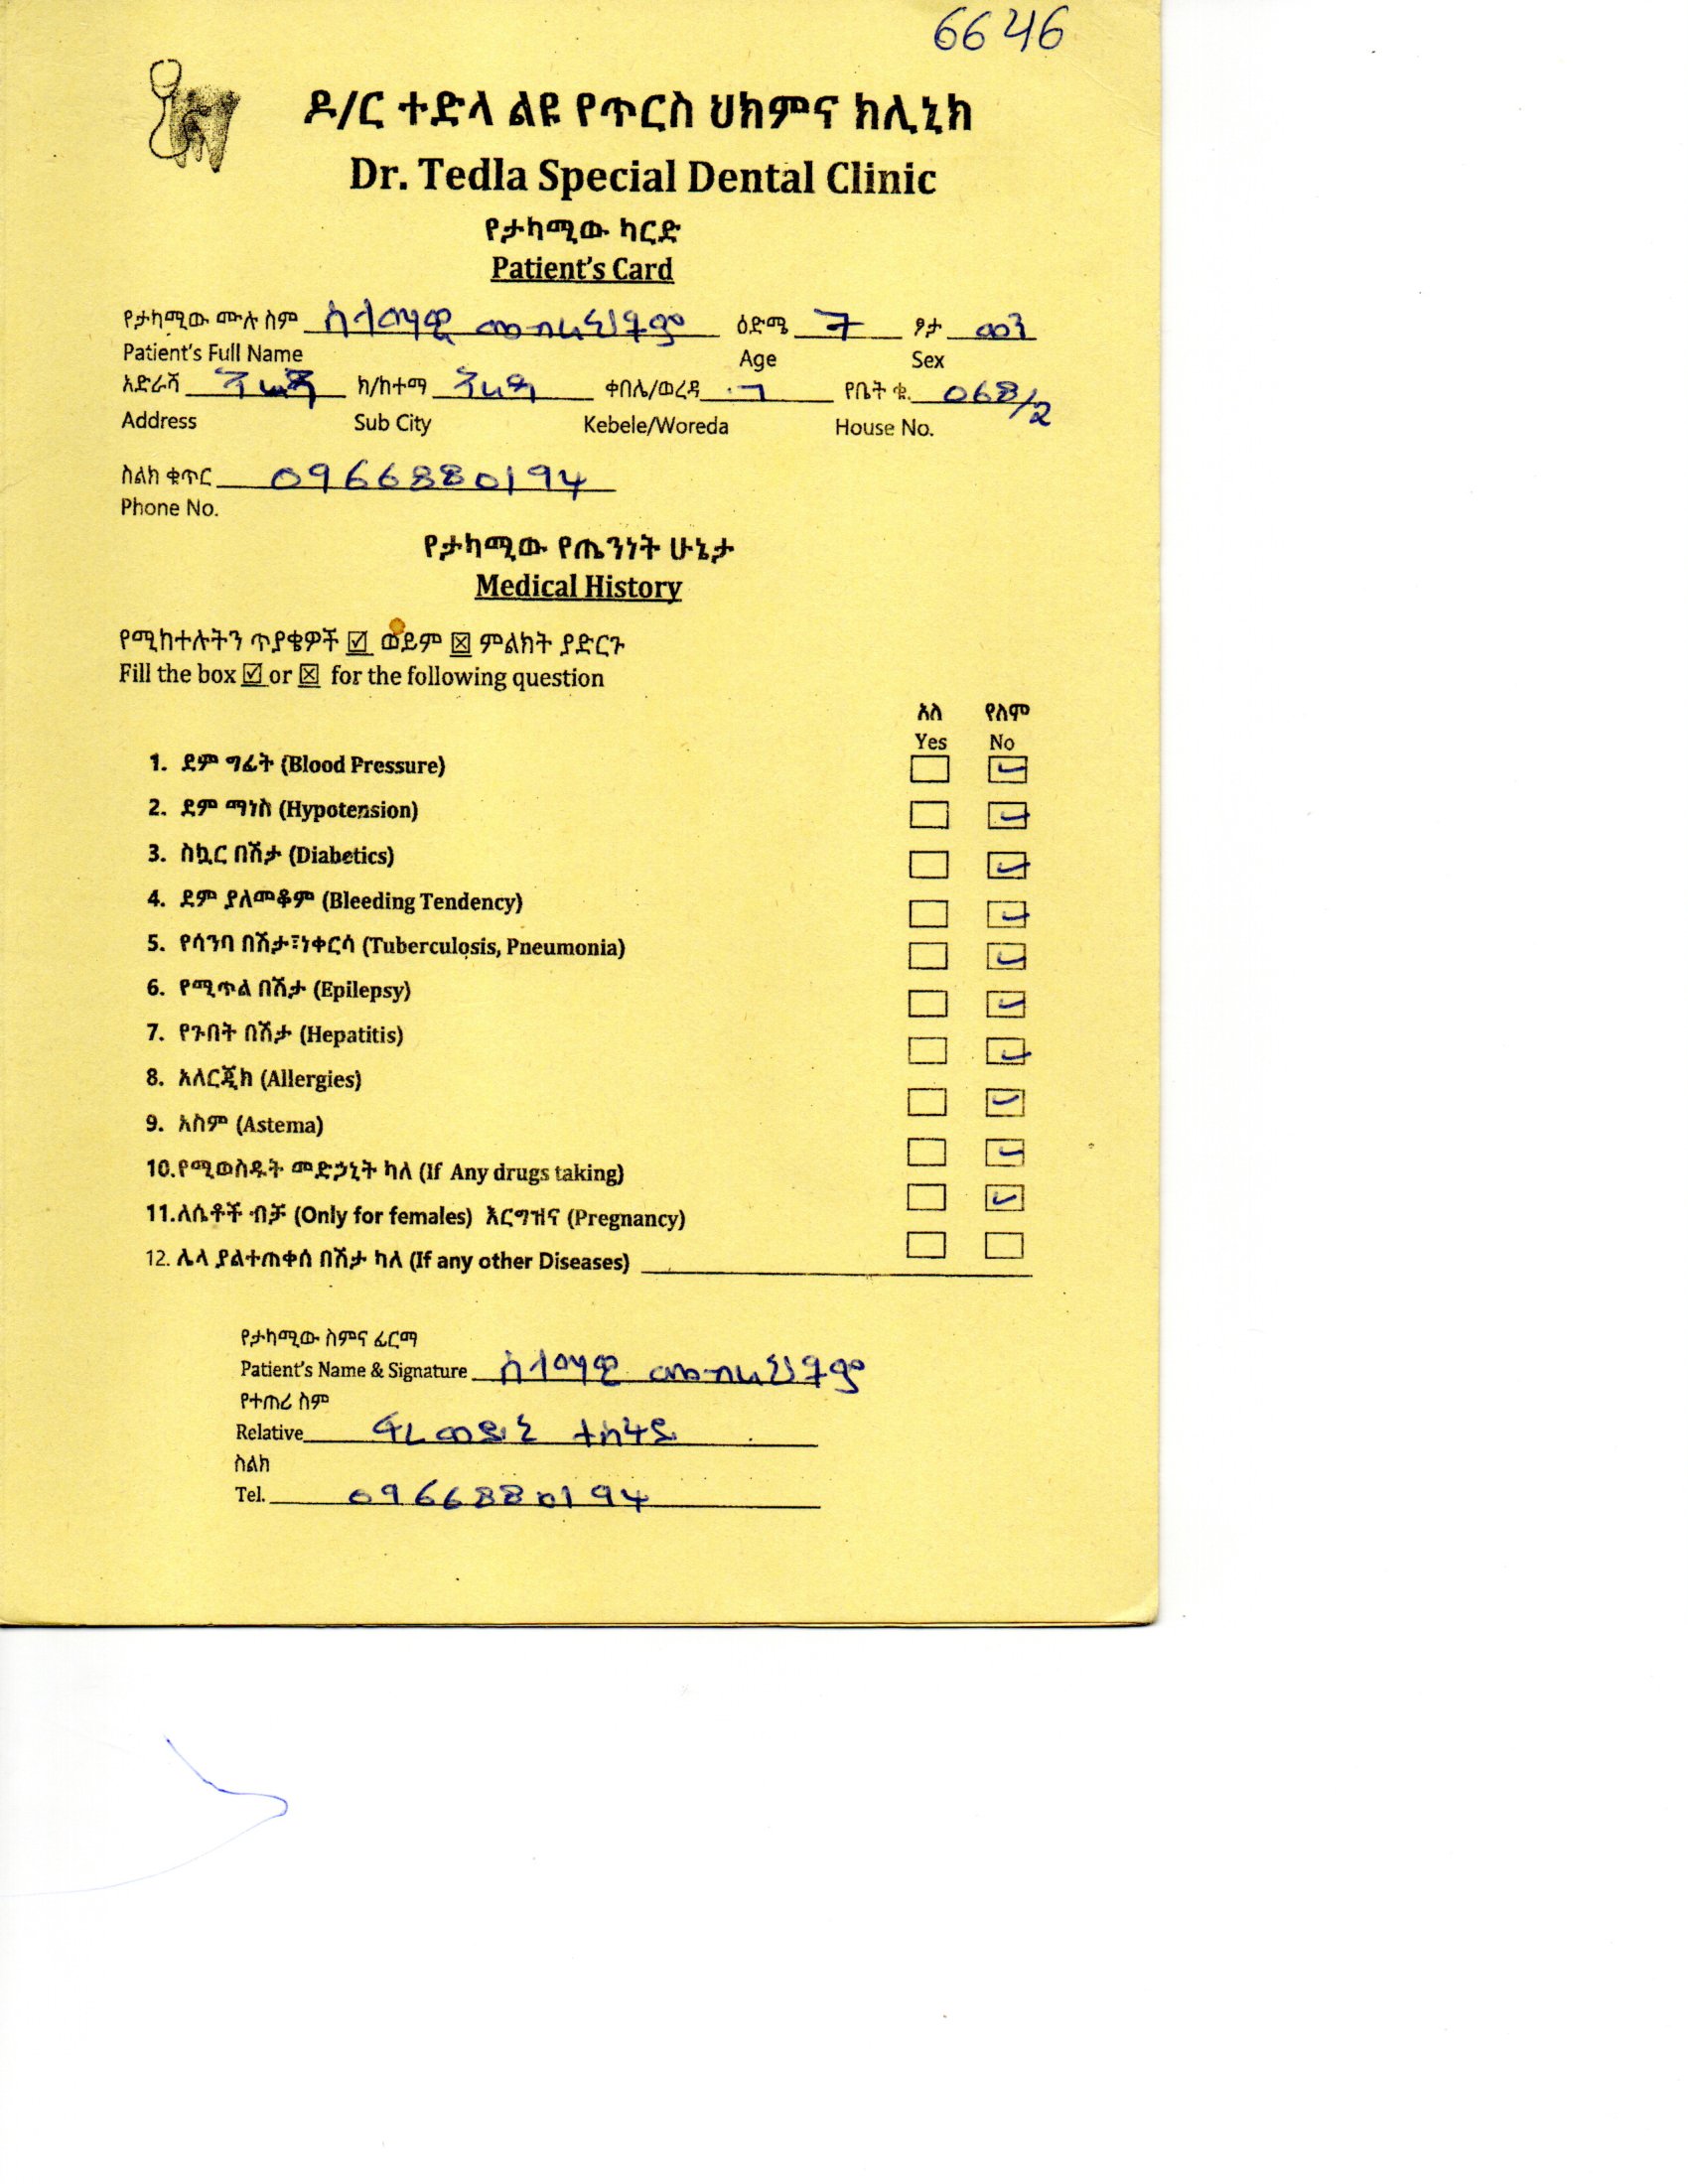 6646
ዶ/ር ተድላ ልዩ የጥርስ ህክምና ክሊኒክ
Dr. Tedla Special Dental Clinic
የታካሚው ካርድ
Patient's Card
የታካሚው ሙሉ ስም ዕድሜ 7 ፆታ ወንድ
Patient's Full Name Age Sex
አድራሻ ክ/ከተማ ቀበሌ/ወረዳ የቤት ቁ. 068/2
Address Sub City Kebele/Woreda House No.
ስልክ ቁጥር 0966880194
Phone No.
የታካሚው የጤንነት ሁኔታ
Medical History
የሚከተሉትን ጥያቄዎች ☑ ወይም ☒ ምልክት ያድርጉ
Fill the box ☑ or ☒ for the following question
አለ የለም
Yes No
1. ደም ግፊት (Blood Pressure) ☐ ☑
2. ደም ማነስ (Hypotension) ☐ ☑
3. ስኳር በሽታ (Diabetics) ☐ ☑
4. ደም ያለመቆም (Bleeding Tendency) ☐ ☑
5. የሳንባ በሽታ፣ነቀርሳ (Tuberculosis, Pneumonia) ☐ ☑
6. የሚጥል በሽታ (Epilepsy) ☐ ☑
7. የጉበት በሽታ (Hepatitis) ☐ ☑
8. አለርጂክ (Allergies) ☐ ☑
9. አስም (Astema) ☐ ☑
10.የሚወስዱት መድኃኒት ካለ (If Any drugs taking) ☐ ☑
11.ለሴቶች ብቻ (Only for females) እርግዝና (Pregnancy) ☐ ☐
12. ሌላ ያልተጠቀሰ በሽታ ካለ (If any other Diseases)
የታካሚው ስምና ፊርማ
Patient's Name & Signature
የተጠሪ ስም
Relative
ስልክ
Tel. 0966880194